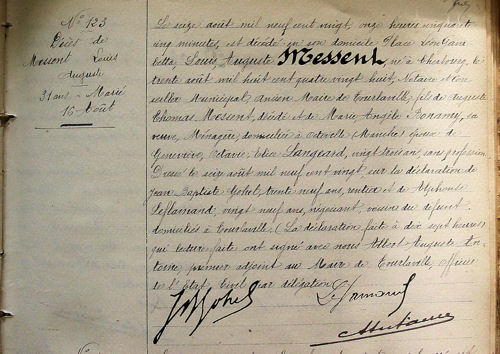 N° 123
Décès de
Messent Louis
Auguste
31 ans - Marié
16 Août
Le seize août mil neuf cent vingt, onze heures cinquante
cinq minutes, est décédé en son domicile Place Léon Gam
betta, Louis Auguste Messent, né à Cherbourg, le
trente août mil huit cent quatre vingt huit, Notaire et Con
seiller Municipal, ancien Maire de Tourlaville, fils de Auguste
Thomas Messent, décédé et de Marie Angèle Bonamy, sa
veuve, Ménagère, domiciliée à Octeville (Manche) époux de
Geneviève, Octavie, Langeard, vingt trois ans, sans profession
Dressé le seize août mil neuf cent vingt sur la déclaration de
Jean Baptiste Gohel, trente neuf ans, rentier et de Alphonse
vingt neuf ans, négociant, voisin du défunt,
domiciliés à Tourlaville, (La déclaration faite à dix sept heures)
qui lecture faite ont signé avec nous Albert Auguste
premier adjoint au Maire de Tourlaville, Officier
de l'Etat Civil par délégation.
Gohel